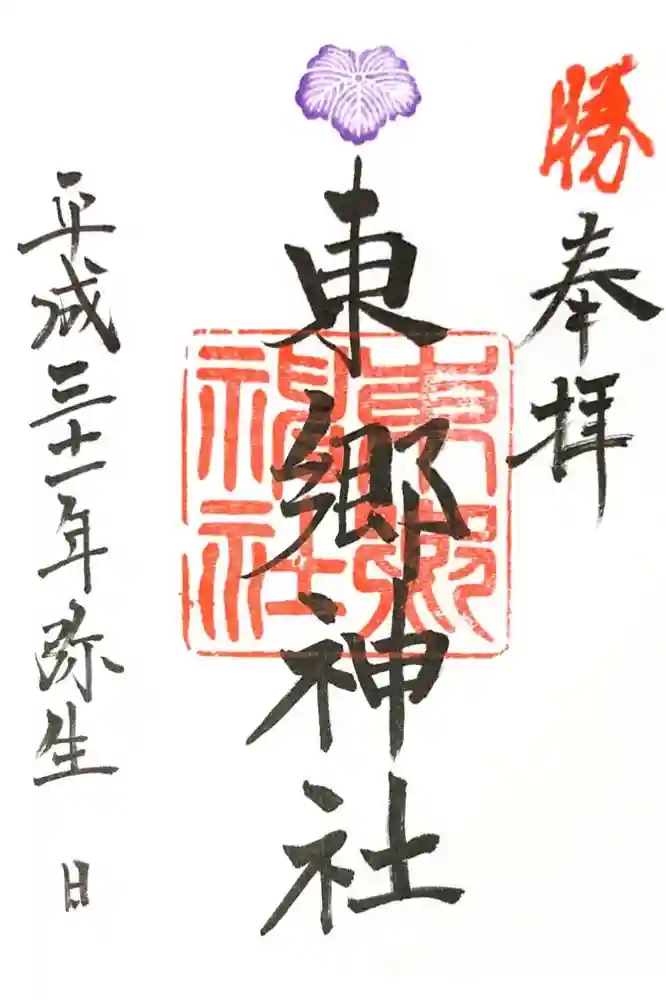 勝
奉拝
東郷神社
東郷神社
平成三十一年弥生 日